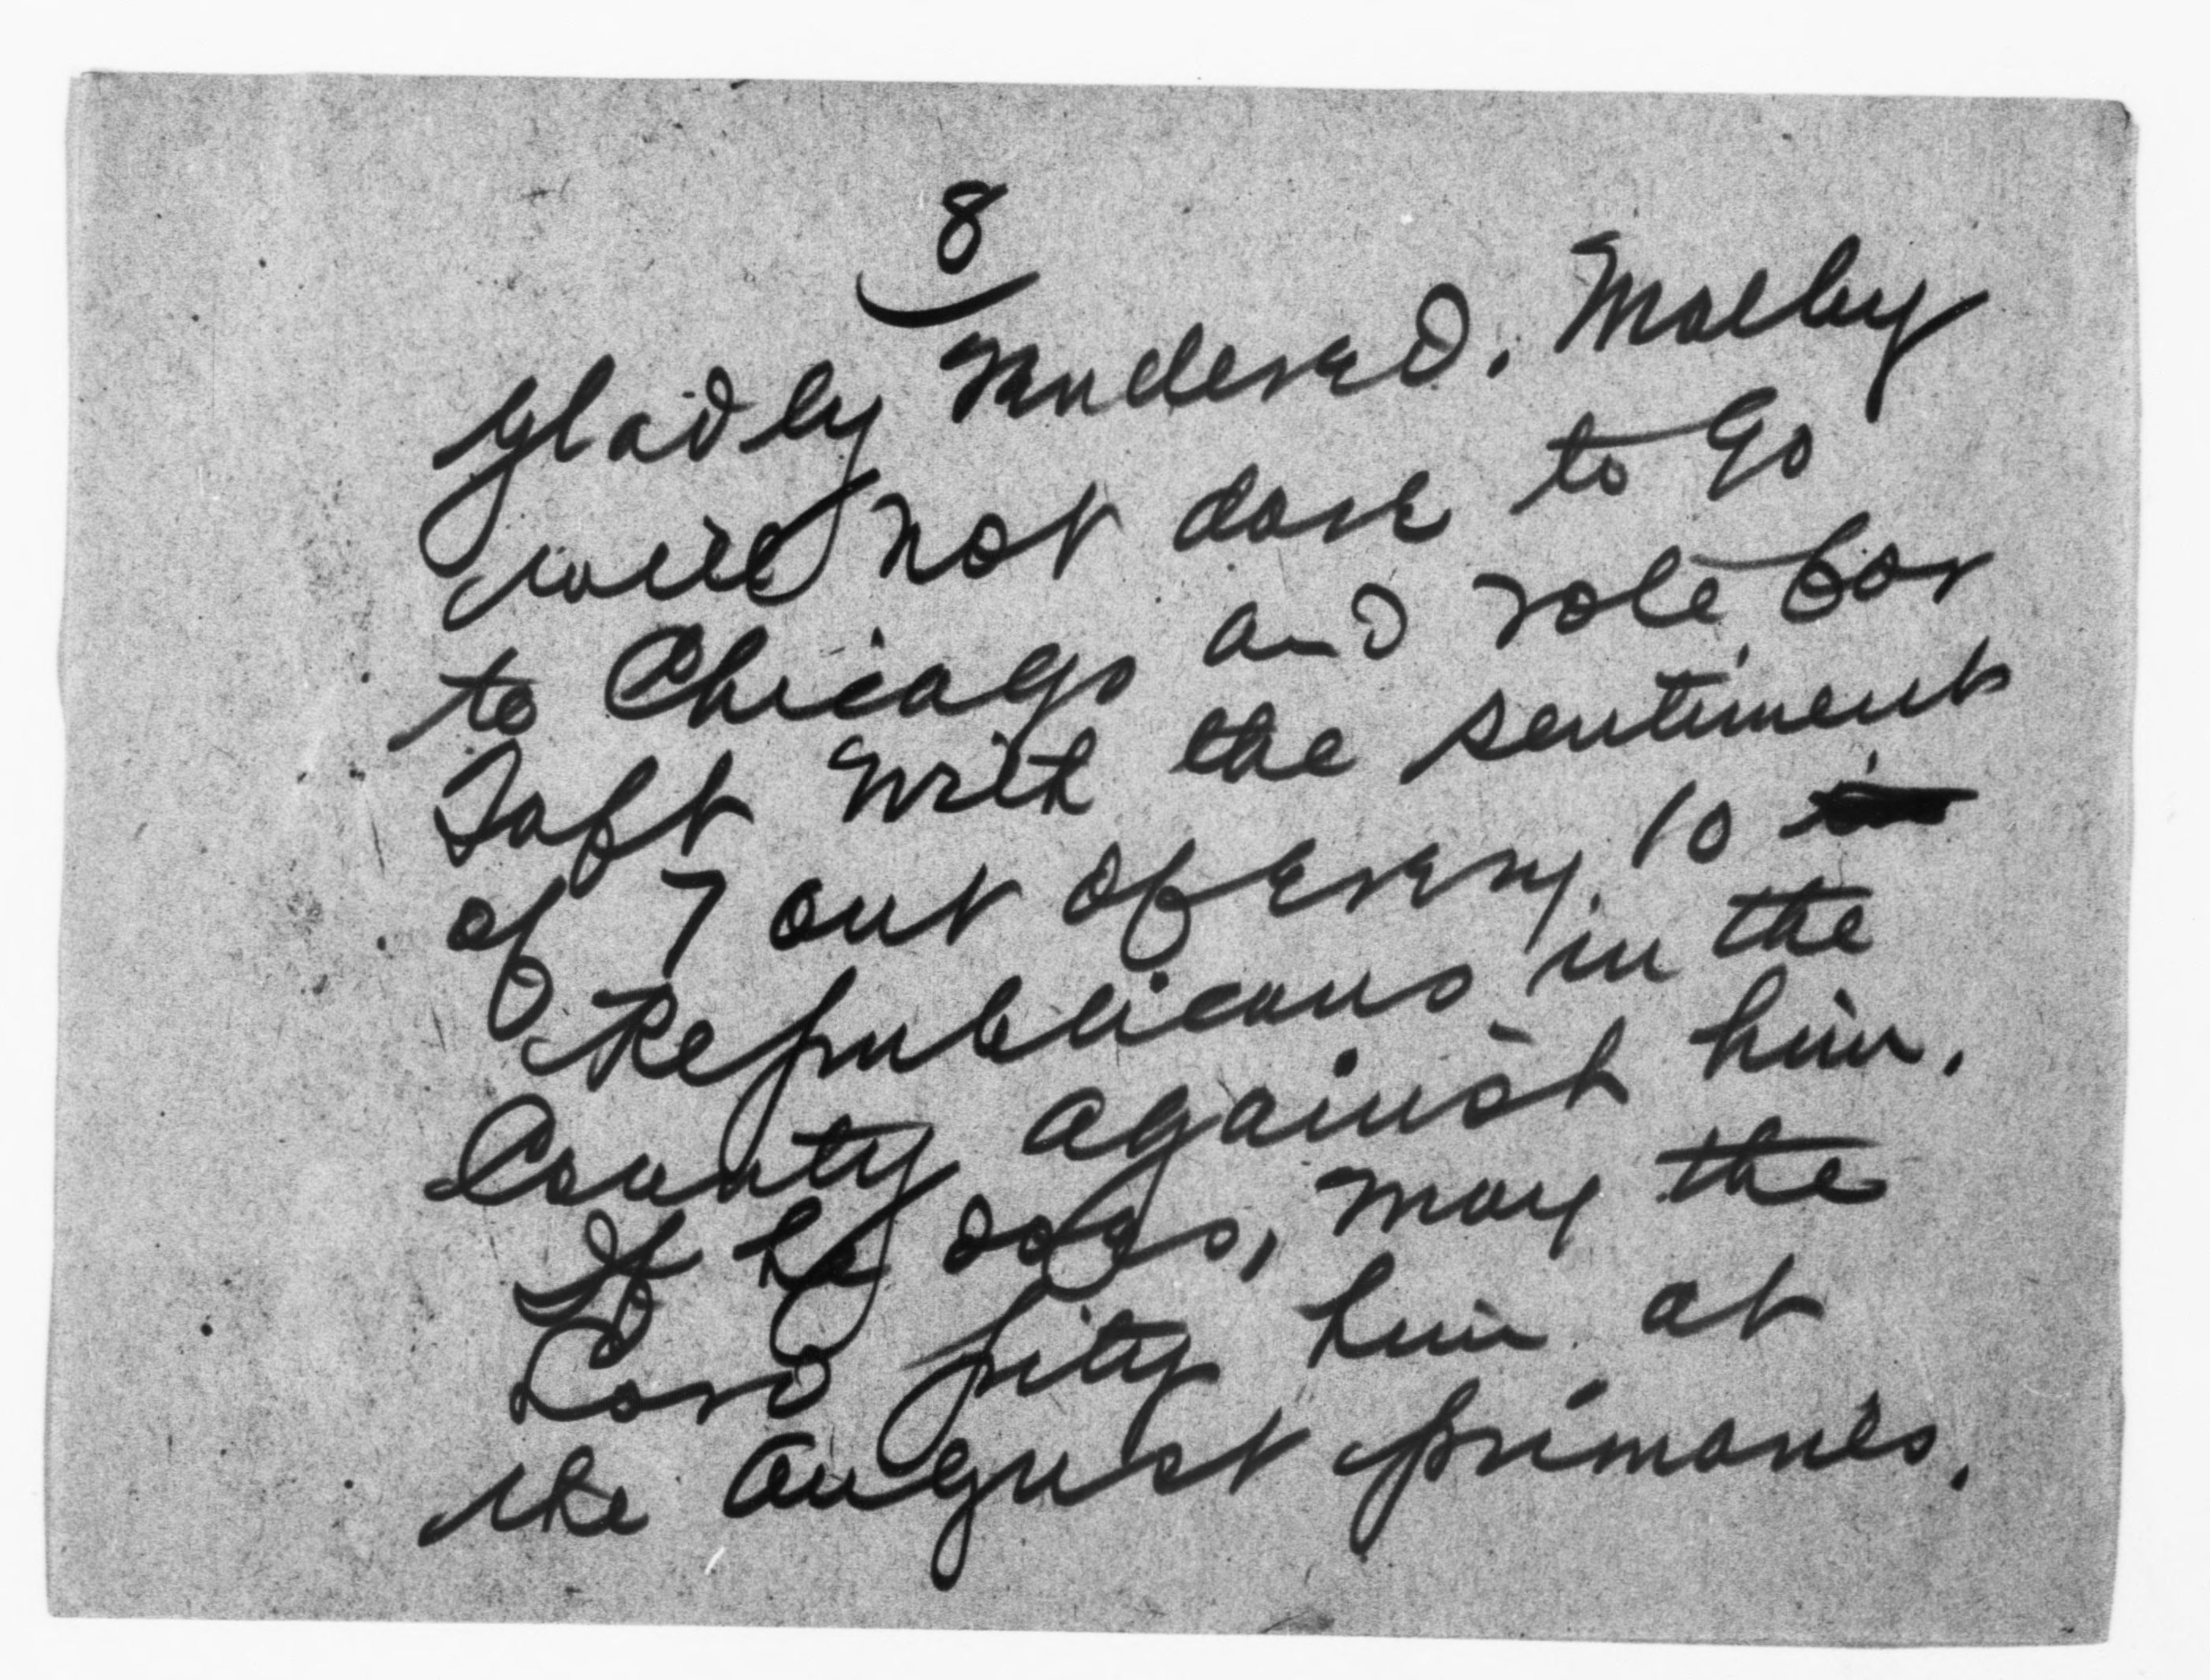 8
gladly rendered. Malby
will not dare to go
to Chicago and vote for
Taft with the sentiment
of 7 out of every 10
Republicans in the
County against him.
If he does, may the
Lord pity him at
the August primaries.